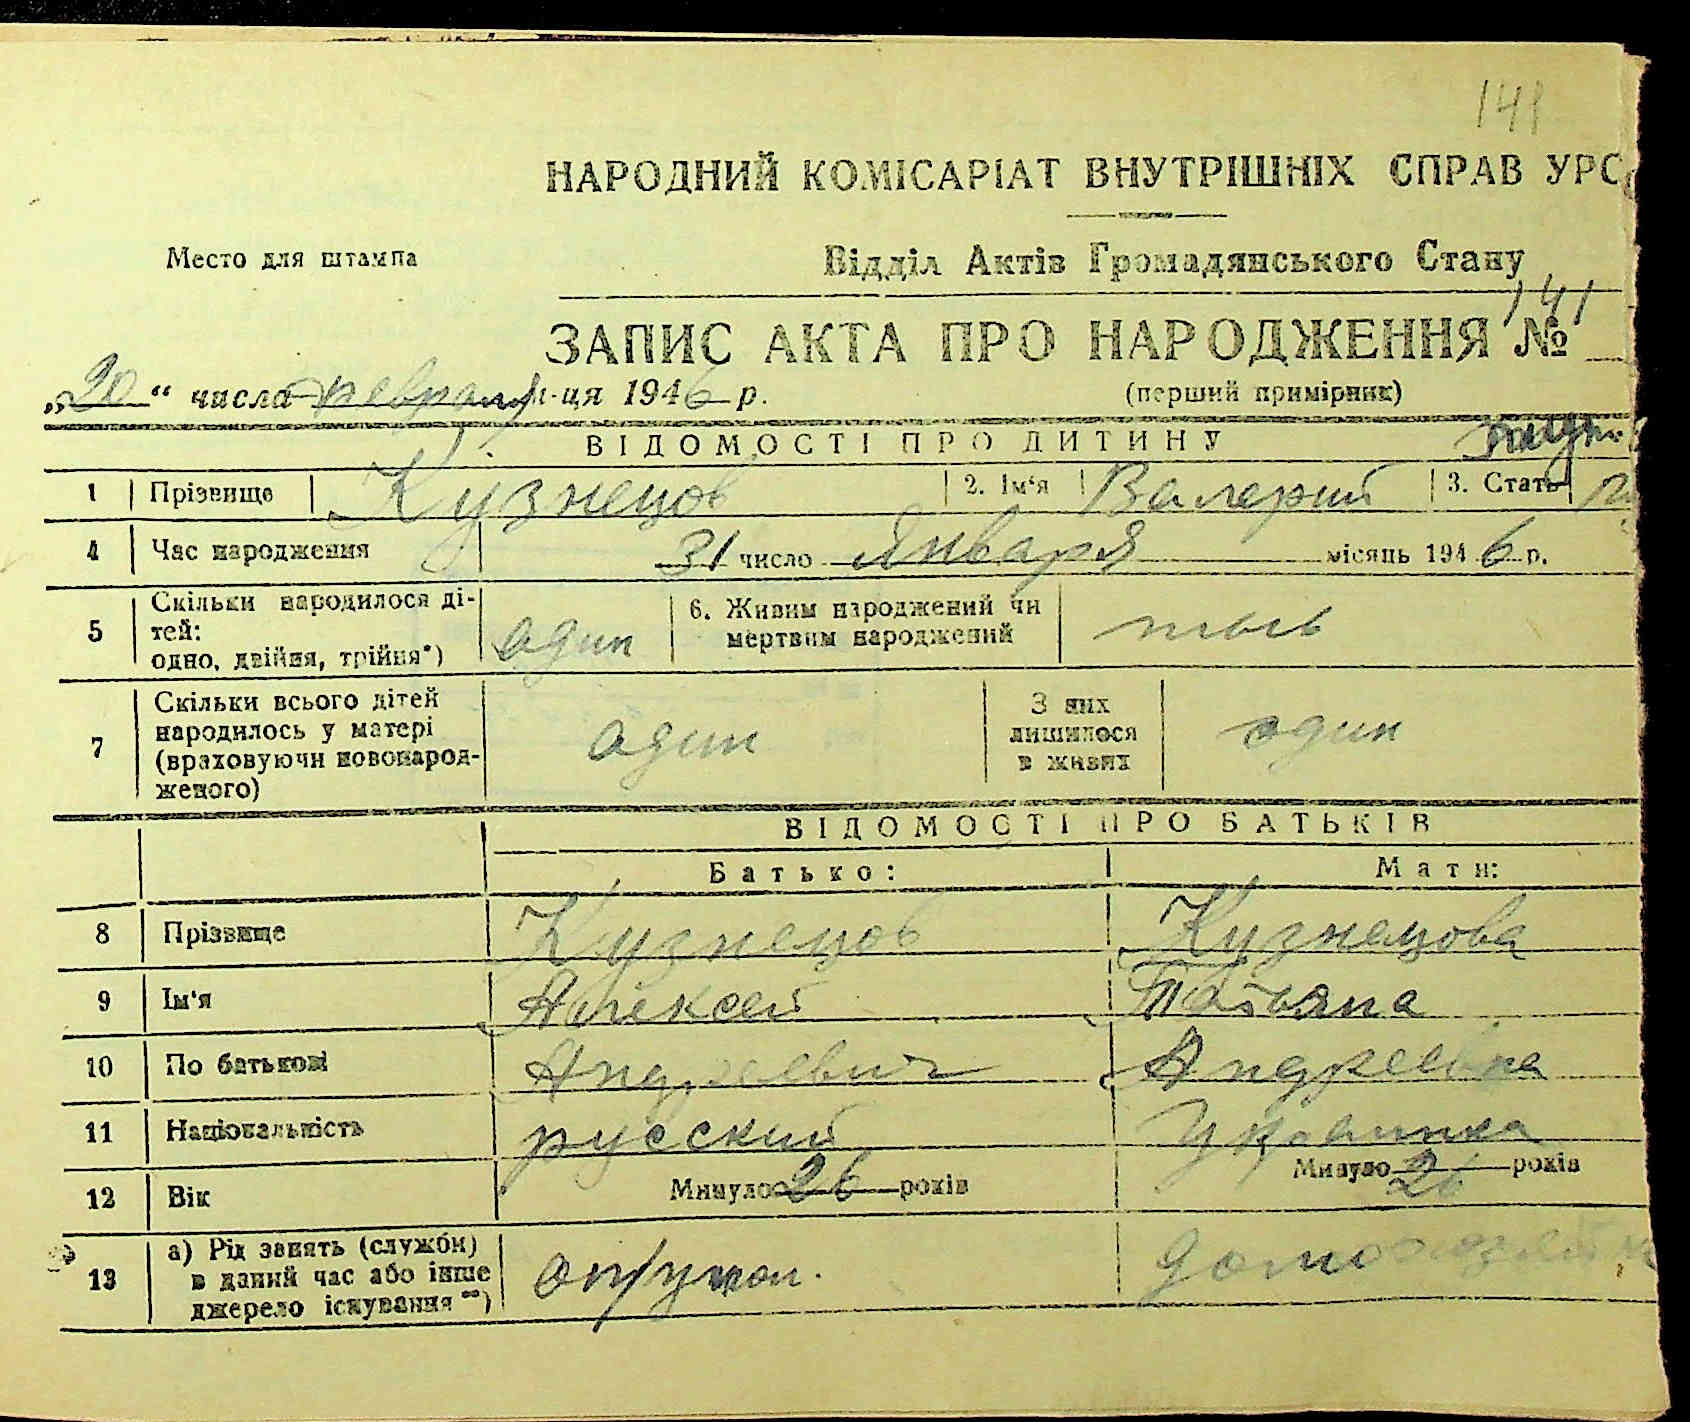 141
НАРОДНИЙ КОМІСАРІАТ ВНУТРІШНІХ СПРАВ УРС
Место для штампа
Відділ Актів Громадянського Стану
141
ЗАПИС АКТА ПРО НАРОДЖЕННЯ №
„20“ числа февраля м-ця 1946 р.
(перший примірник)
ВІДОМОСТІ ПРО ДИТИНУ
1 Прізвище Кузнецов 2. Ім'я Валерий 3. Стать
4 Час народження 31 число Января місяць 1946 р.
5 Скільки народилося ді-
тей:
одно, двійня, трійня*) один
6. Живим народжений чи
мертвим народжений
7 Скільки всього дітей
народилось у матері
(враховуючи новонарод-
женого) один
З них
лишилося
в живих один
ВІДОМОСТІ ПРО БАТЬКІВ
Батько: Мати:
8 Прізвище Кузнецов Кузнецова
9 Ім'я Алексей Татьяна
10 По батькові Андреевич Андреевна
11 Національність русский Украинка
12 Вік Минуло 26 років Минуло 26 років
13 а) Рід занять (служби)
в даний час або інше
джерело існування **) домохозяйк